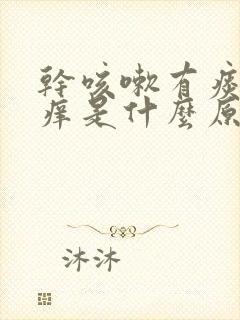 幹咳嗽有痰
痒是什麼原
沐沐